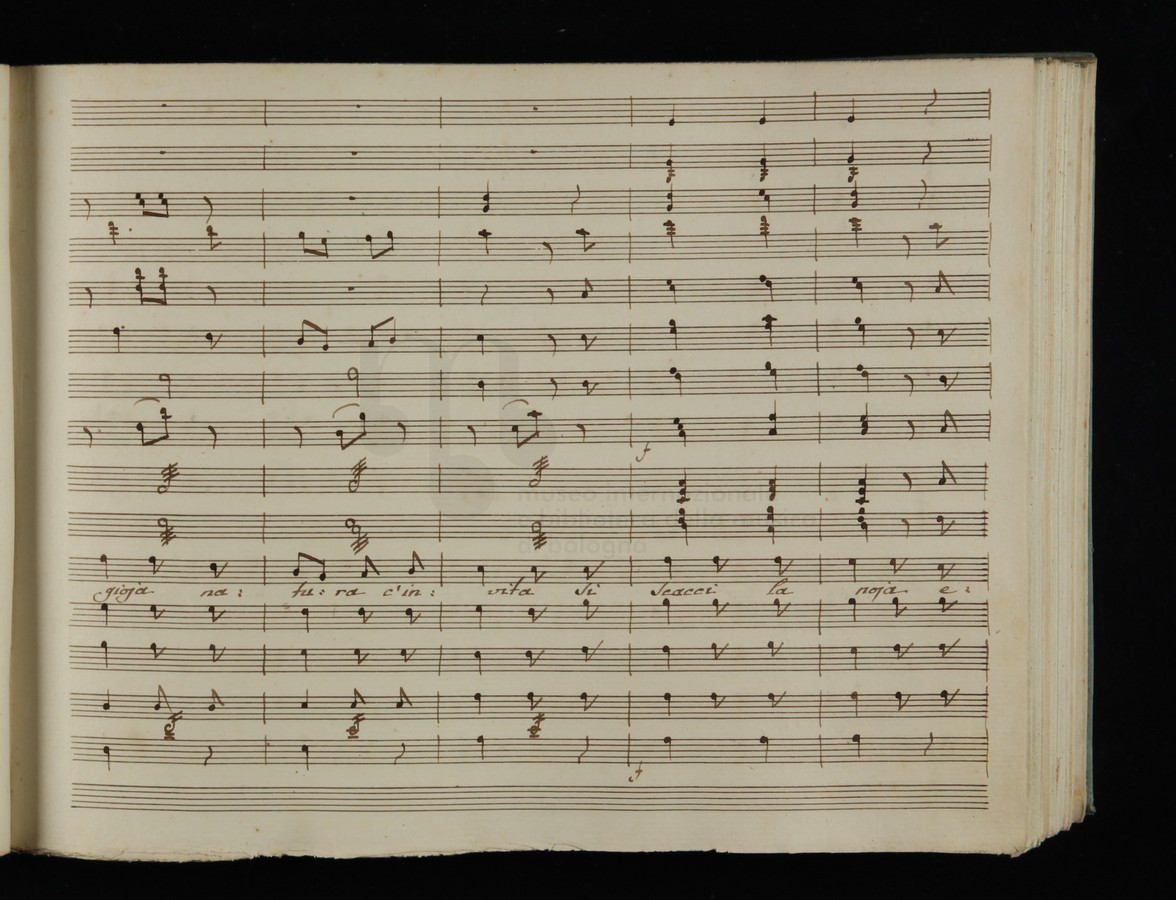 f
museo internazionale
e biblioteca della musica
di bologna
gioja na: tu: ra c'in: vita si scacci la noja e:
f